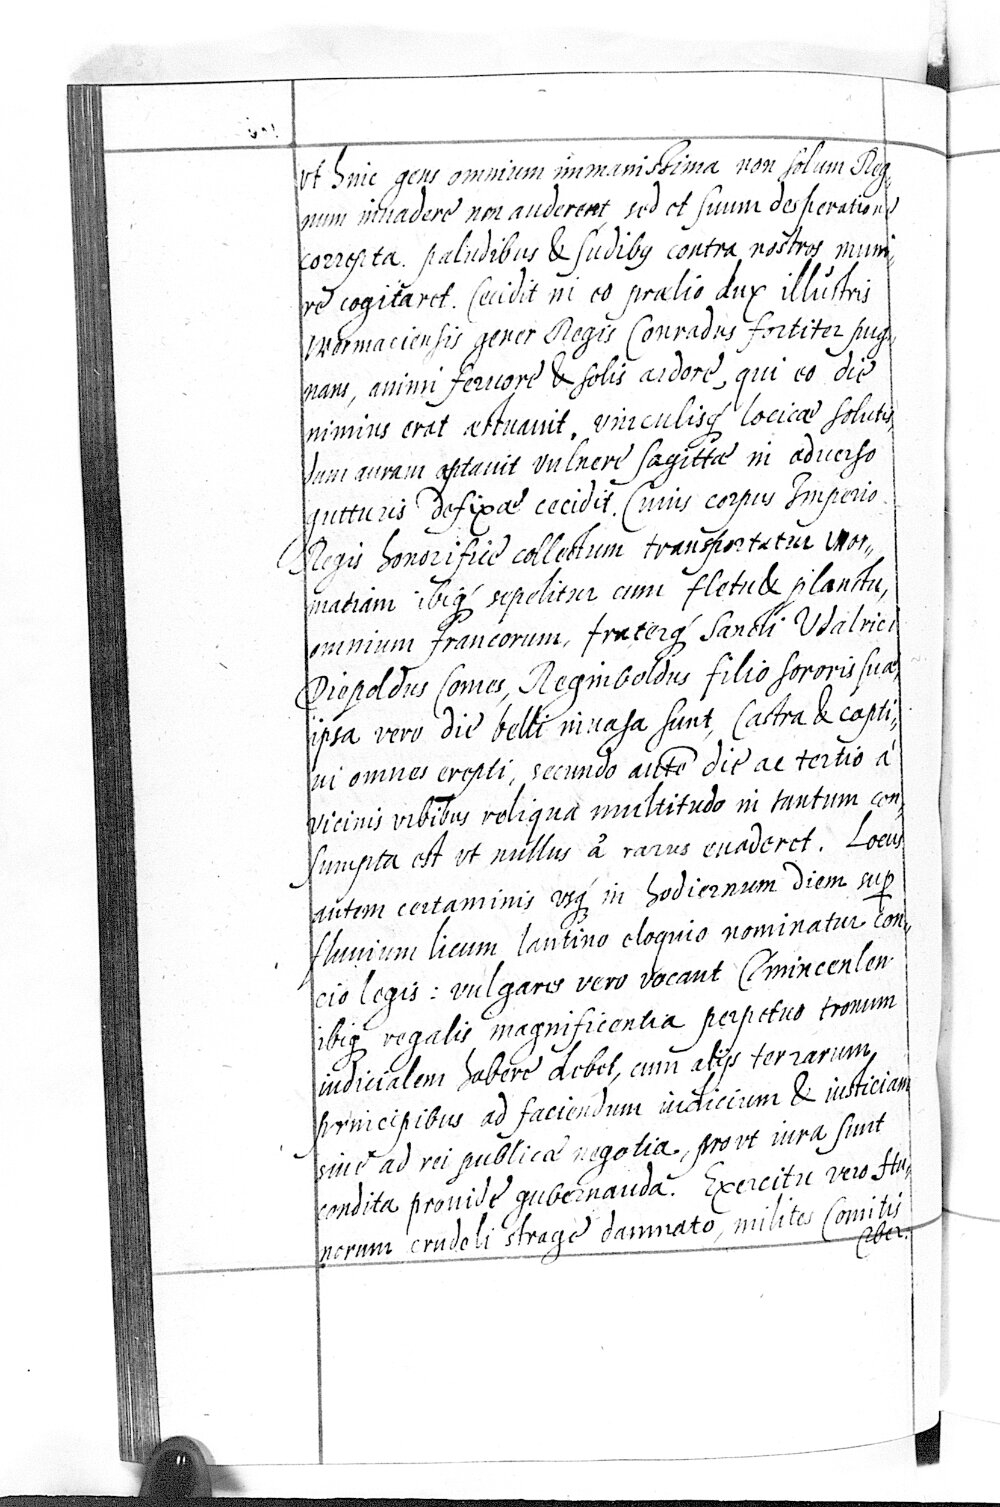 vt hinc gens omnium immanissima non solum Reg„
num inuadere non auderent, sed et suum desperatione
correpta. paludibus & sudibꝫ contra nostros muni„
re cogitaret. Cecidit in eo prælio dux illustris
Wormaciensis gener Regis Conradus fortiter pug„
nans, animi feruore & solis ardore, qui eo die
nimius erat æstuauit, vinculisq́ loricæ solutis
dum auram aptauit vulnere sagittæ in aduerso
gutturis defixæ cecidit. Cuius corpus Imperio
Regis honorifice collectum transportatur Wor„
matiam ibiq́ sepelitur cum fletu & planctu,
omnium francorum, fraterq́ Sancti Vdalrici
Diepoldus Comes, Reginboldus filio sororis suæ,
ipsa vero die belli inuasa sunt, Castra & capti„
ui omnes erepti, secundo aute die ac tertio á
vicinis vrbibus reliqua multitudo in tantum con„
sumpta est vt nullus á rarus euaderet. Locus
autem certaminis vsq́ in hodiernum diem sup
fluuium licum lantino eloquio nominatur con„
cio legis: vulgares vero vocant
ibiq́ regalis magnificentia perpetuo tronum
iudicialem habere debet, cum alijs terrarum
principibus ad faciendum iudicium & iusticiam
siue ad rei publicæ negotia, prout iura sunt
condita prouide gubernanda. Exercitu vero Hu„
norum crudeli strage damnato, milites Comitis
Eber.